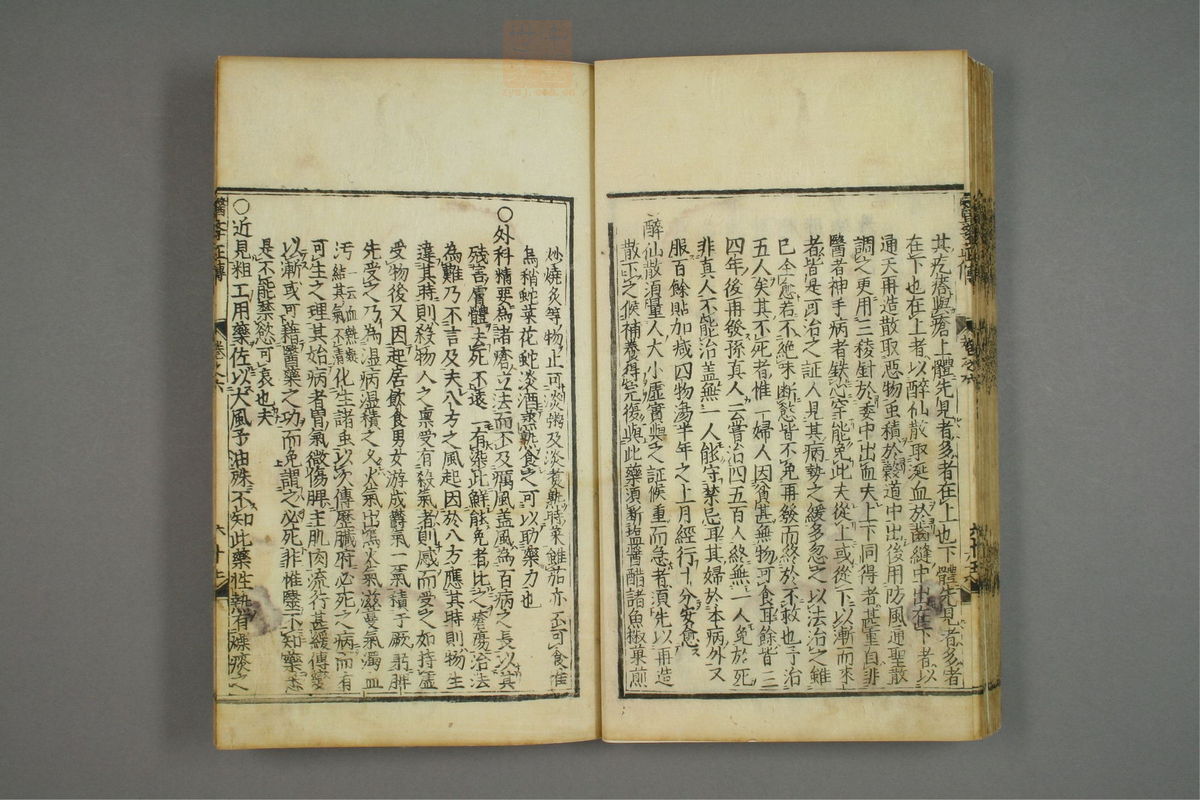 其疙瘩與瘡上體先見者多者在上也下體先見者多者
在下也在上者以醉仙散取涎血於齒縫中出在下者以
通天再造散取惡物虫積於糓道中出後用防風通聖散
調之更用三稜針於委中出血夫上下同得者甚重自非
醫者神手病者鉄心罕能免此夫從上或從下以漸而來
者皆是可治之証人見其病勢之緩多忽之以法治之雖
已全愈若不絶味断慾皆不免再發而終於不救也予治
五人矣其不死者惟一婦人因貧甚無物可食耳餘皆三
四年後再發孫真人云嘗治四五百人終無一人免於死
非真人不能治盖無一人能守禁忌耳其婦於本病外又
服百餘貼加减四物湯半年之上月經行十分安愈
醉仙散須量人大小虛實與之証候重而急者須先以再造
散正之候補養得完復與此藥須断塩醬醋諸魚椒菓煎
炒燒炙等物止可淡粥及淡煮熟時菜雖茄亦不可食惟
烏稍蛇菜花蛇淡酒煮熟食之可以助藥力也
○外科精要為諸瘡立法而不及癘風盖風為百病之長以其
殘害膚體去死不遠有染此鮮能免者比之癰瘍治法
為難乃不言及夫八方之風起因於八方應其時則物生
違其時則殺物人之禀受有殺氣者則感而受之如持虛
受物後又因起居飲食男女游成欝氣一氣積于厥躬脾
先受之乃為湿病湿積之久火氣出焉火氣滋蔓氣濁血
汚一云血熱凝結其氣不清化生諸虫以次傳歷臟府必死之病而有
可生之理其始病者胃氣微傷脾主肌肉流行甚緩傳變
以漸或可藉醫藥之功而免謂之必死非惟醫不知藥患
是不能禁慾可哀也夫
○近見粗工用藥佐以大風子油殊不知此藥性熱有燥痰之
醫學正傳
卷之六